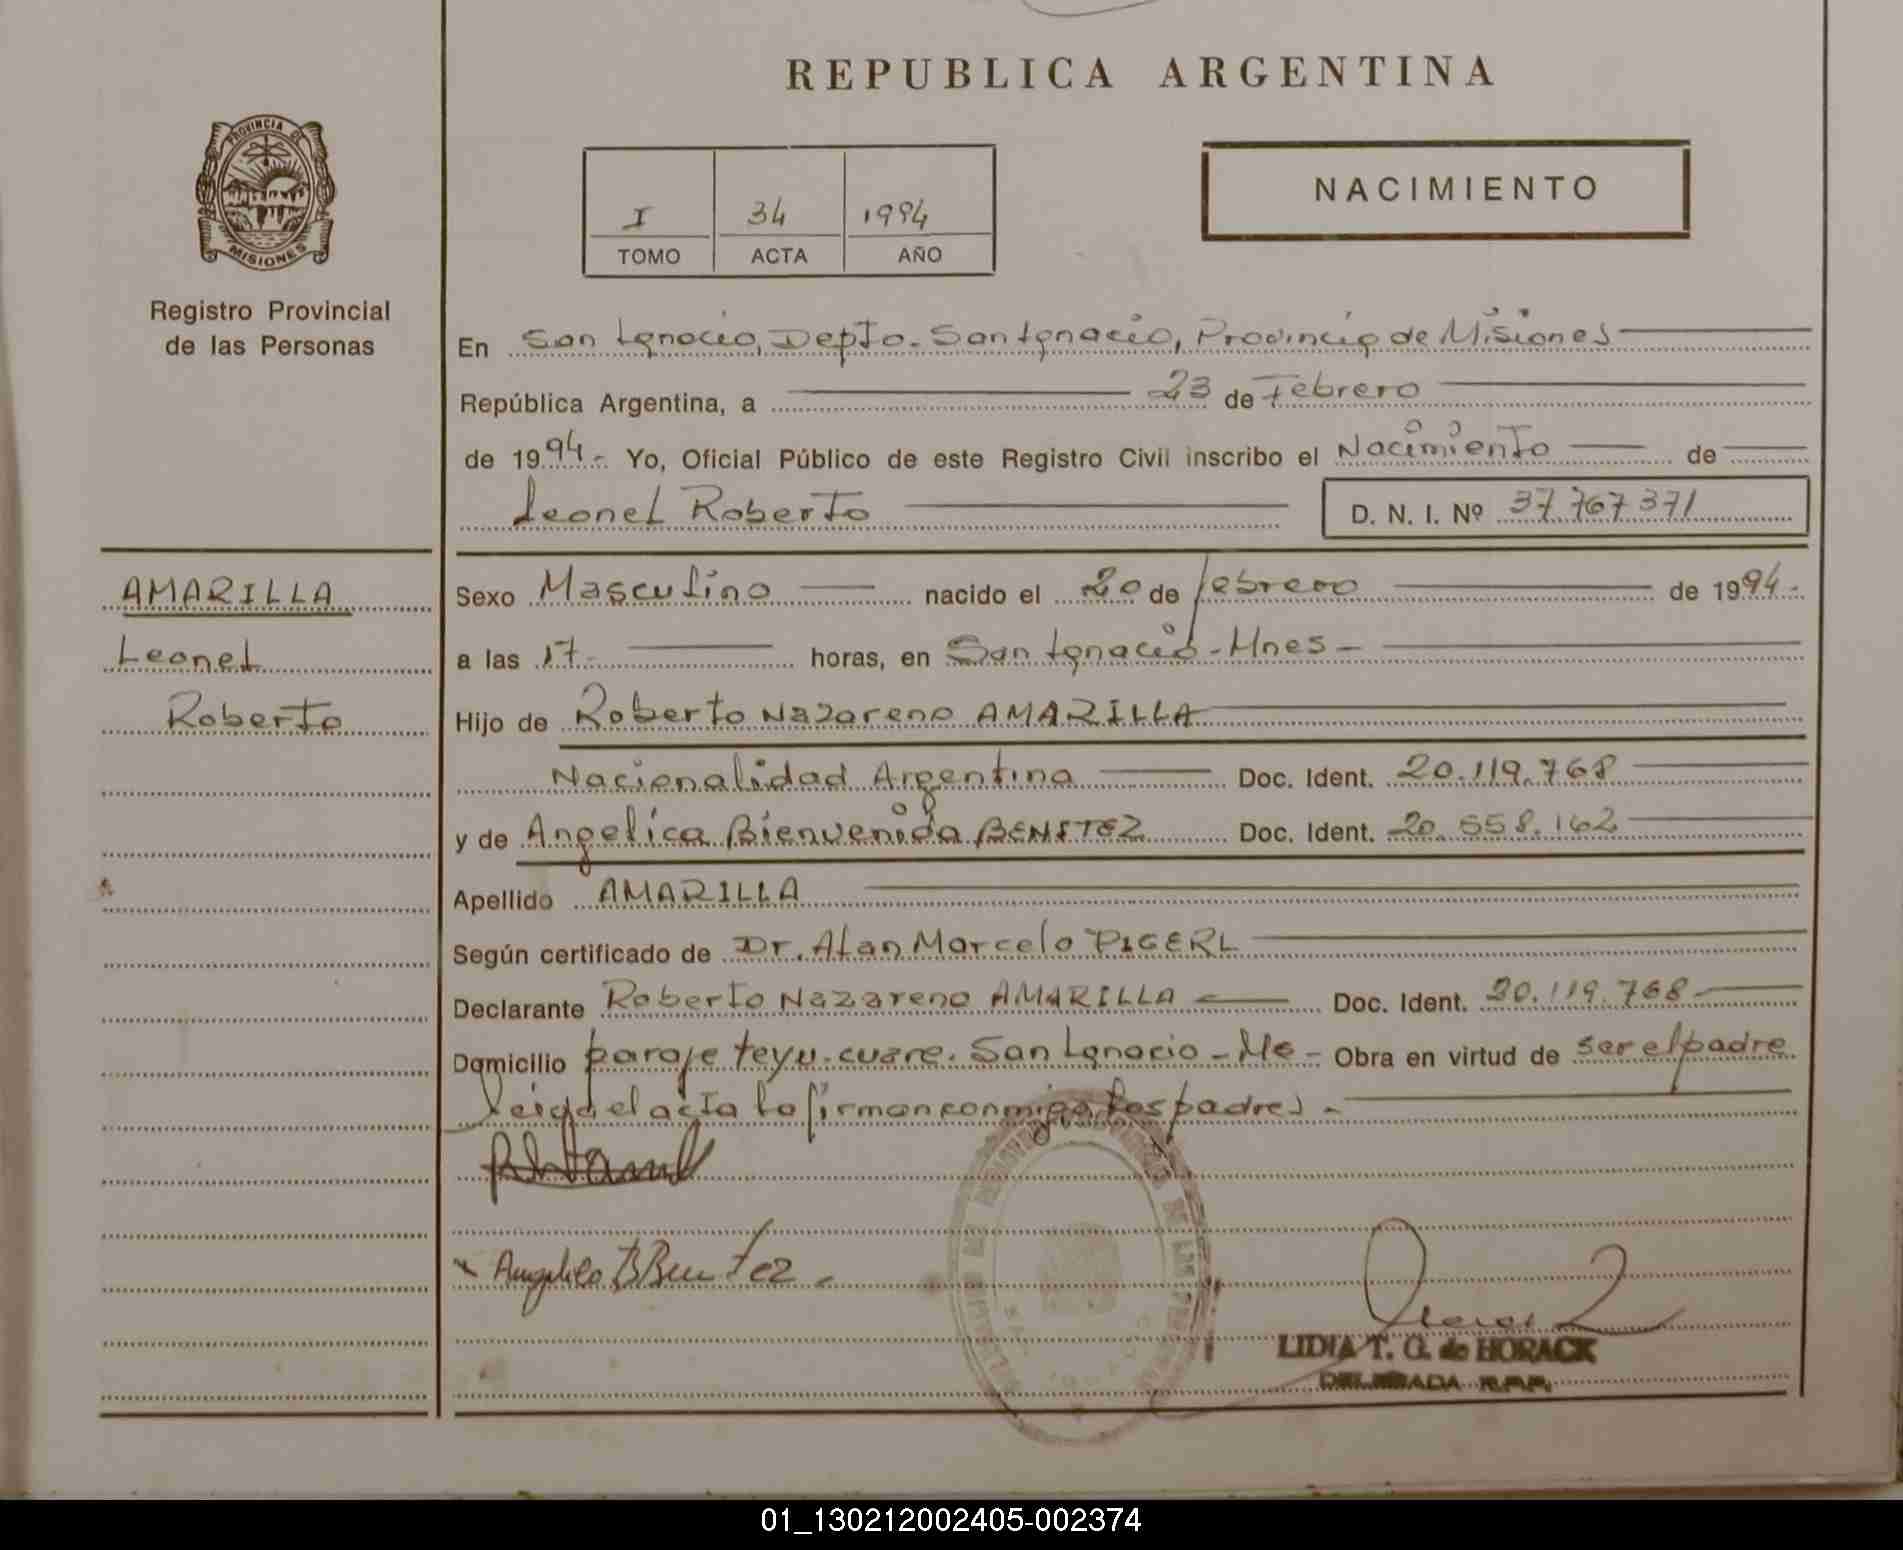 REPUBLICA ARGENTINA
PROVINCIA DE
MISIONES
Registro Provincial
de las Personas
I 34 1994
TOMO ACTA AÑO
NACIMIENTO
En San Ignacio, Depto. San Ignacio, Provincia de Misiones
República Argentina, a 23 de Febrero
de 1994.- Yo, Oficial Público de este Registro Civil inscribo el Nacimiento de
Leonel Roberto D. N. I. Nº 37 767 371
AMARILLA
Leonel
Roberto
Sexo Masculino nacido el 20 de febrero de 1994.-
a las 17- horas, en San Ignacio - Mnes -
Hijo de Roberto Nazareno AMARILLA
Nacionalidad Argentina Doc. Ident. 20.119.768
y de Angelica Bienvenida BENITEZ Doc. Ident. 20.558.162
Apellido AMARILLA
Según certificado de Dr. Alan Marcelo PIGERL
Declarante Roberto Nazareno AMARILLA Doc. Ident. 20.119.768
Domicilio paraje teyu-cuare. San Ignacio - Me - Obra en virtud de ser el padre
leida el acta la firman conmigo los padres -
LIDIA T. G. de HORACK
DELEGADA R.P.P.
01_130212002405-002374